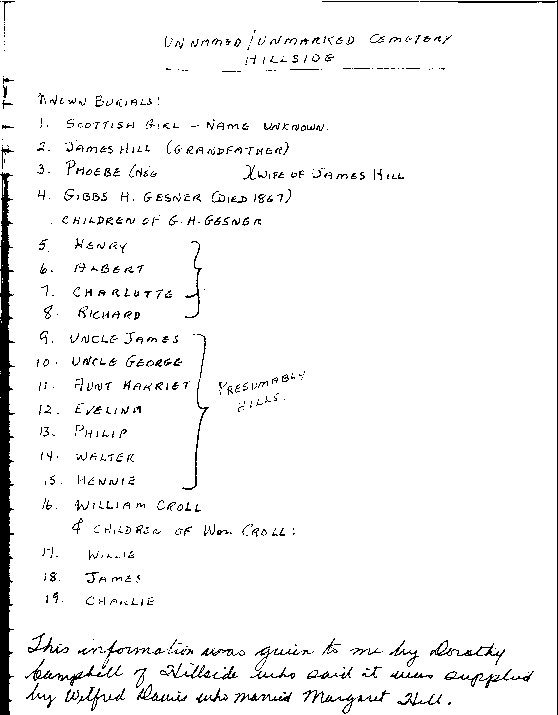 UNNAMED/UNMARKED CEMETERY
HILLSIDE
KNOWN BURIALS:
1. SCOTTISH GIRL - NAME UNKNOWN.
2. JAMES HILL (GRANDFATHER)
3. PHOEBE WIFE OF JAMES HILL
4. GIBBS H. GESNER (DIED 1867)
. CHILDREN OF G.H. GESNER
5. HENRY
6. ALBERT
7. CHARLOTTE
8. RICHARD
9. UNCLE JAMES
10. UNCLE GEORGE
11. AUNT HARRIET
PRESUMABLY
HILLS.
12. EVELINA
13. PHILIP
14. WALTER
15. HENNIE
16. WILLIAM CROLL
& CHILDREN OF Wm. CROLL:
17. WILLIE
18. JAMES
19. CHARLIE
This information was given to me by Dorothy
Campbell of Hillside who said it was supplied
by Wilfred Davis who married Margaret Hill.